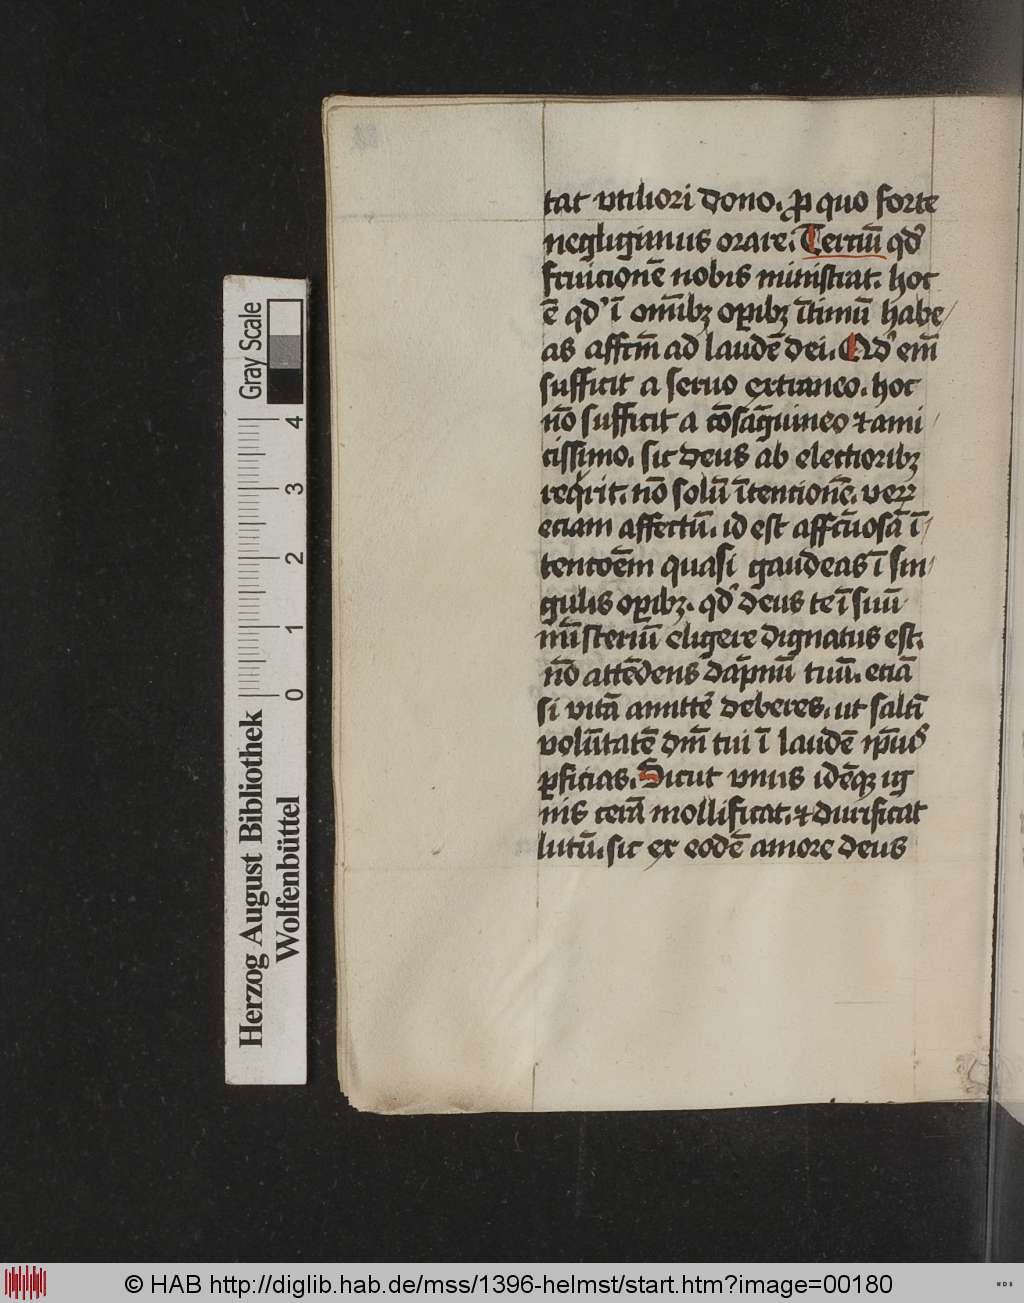 tat vtiliori dono. ꝓ quo forte
negligimus orare. Terciū qd'
fruicionē nobis ministrat. hoc
ē qd' ī om̄ibꝫ oꝑibꝫ ītimū habe/
as affcm̄ ad laudē dei. Qd' em̄
sufficit a seruo extraneo. hoc
nō sufficit a cōsāguineo ⁊ ami/
cissimo. sic deus ab electioribꝫ
reqͥrit. nō solū ītencionē. veꝝ
eciam affectū. id est affcūosā ī/
tencōem quasi gaudeas ī sin/
gulis oꝑibꝫ. qd' deus te ī suū
mīsteriū eligere dignatus est.
nō attēdens dāpnū tuū. eciā
si vitā amittē deberes. ut saltī
volūtatē dm̄ tui ī laudē ip̄ius
ꝑficias. Sicut vnus idēqꝫ ig
nis cerā mollificat. ⁊ durificat
lutū. sic ex eodē amore deus
Gray Scale
4 3 2 1 0
Herzog August Bibliothek
Wolfenbüttel
© HAB http://diglib.hab.de/mss/1396-helmst/start.htm?image=00180
WDB